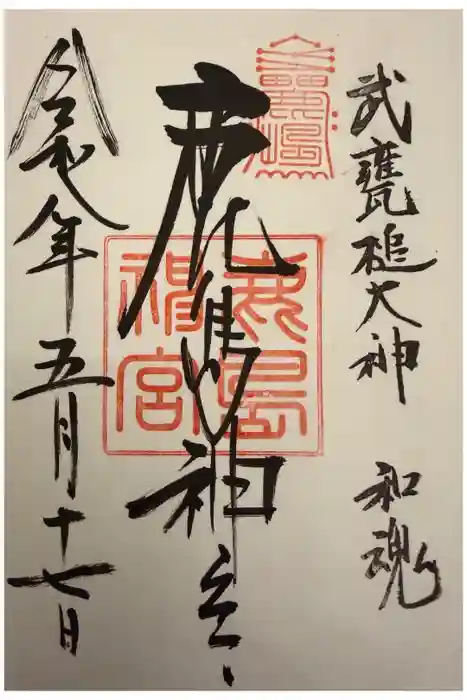 武甕槌大神 和魂
鹿島神宮
鹿島
神宮
令和七年五月十七日